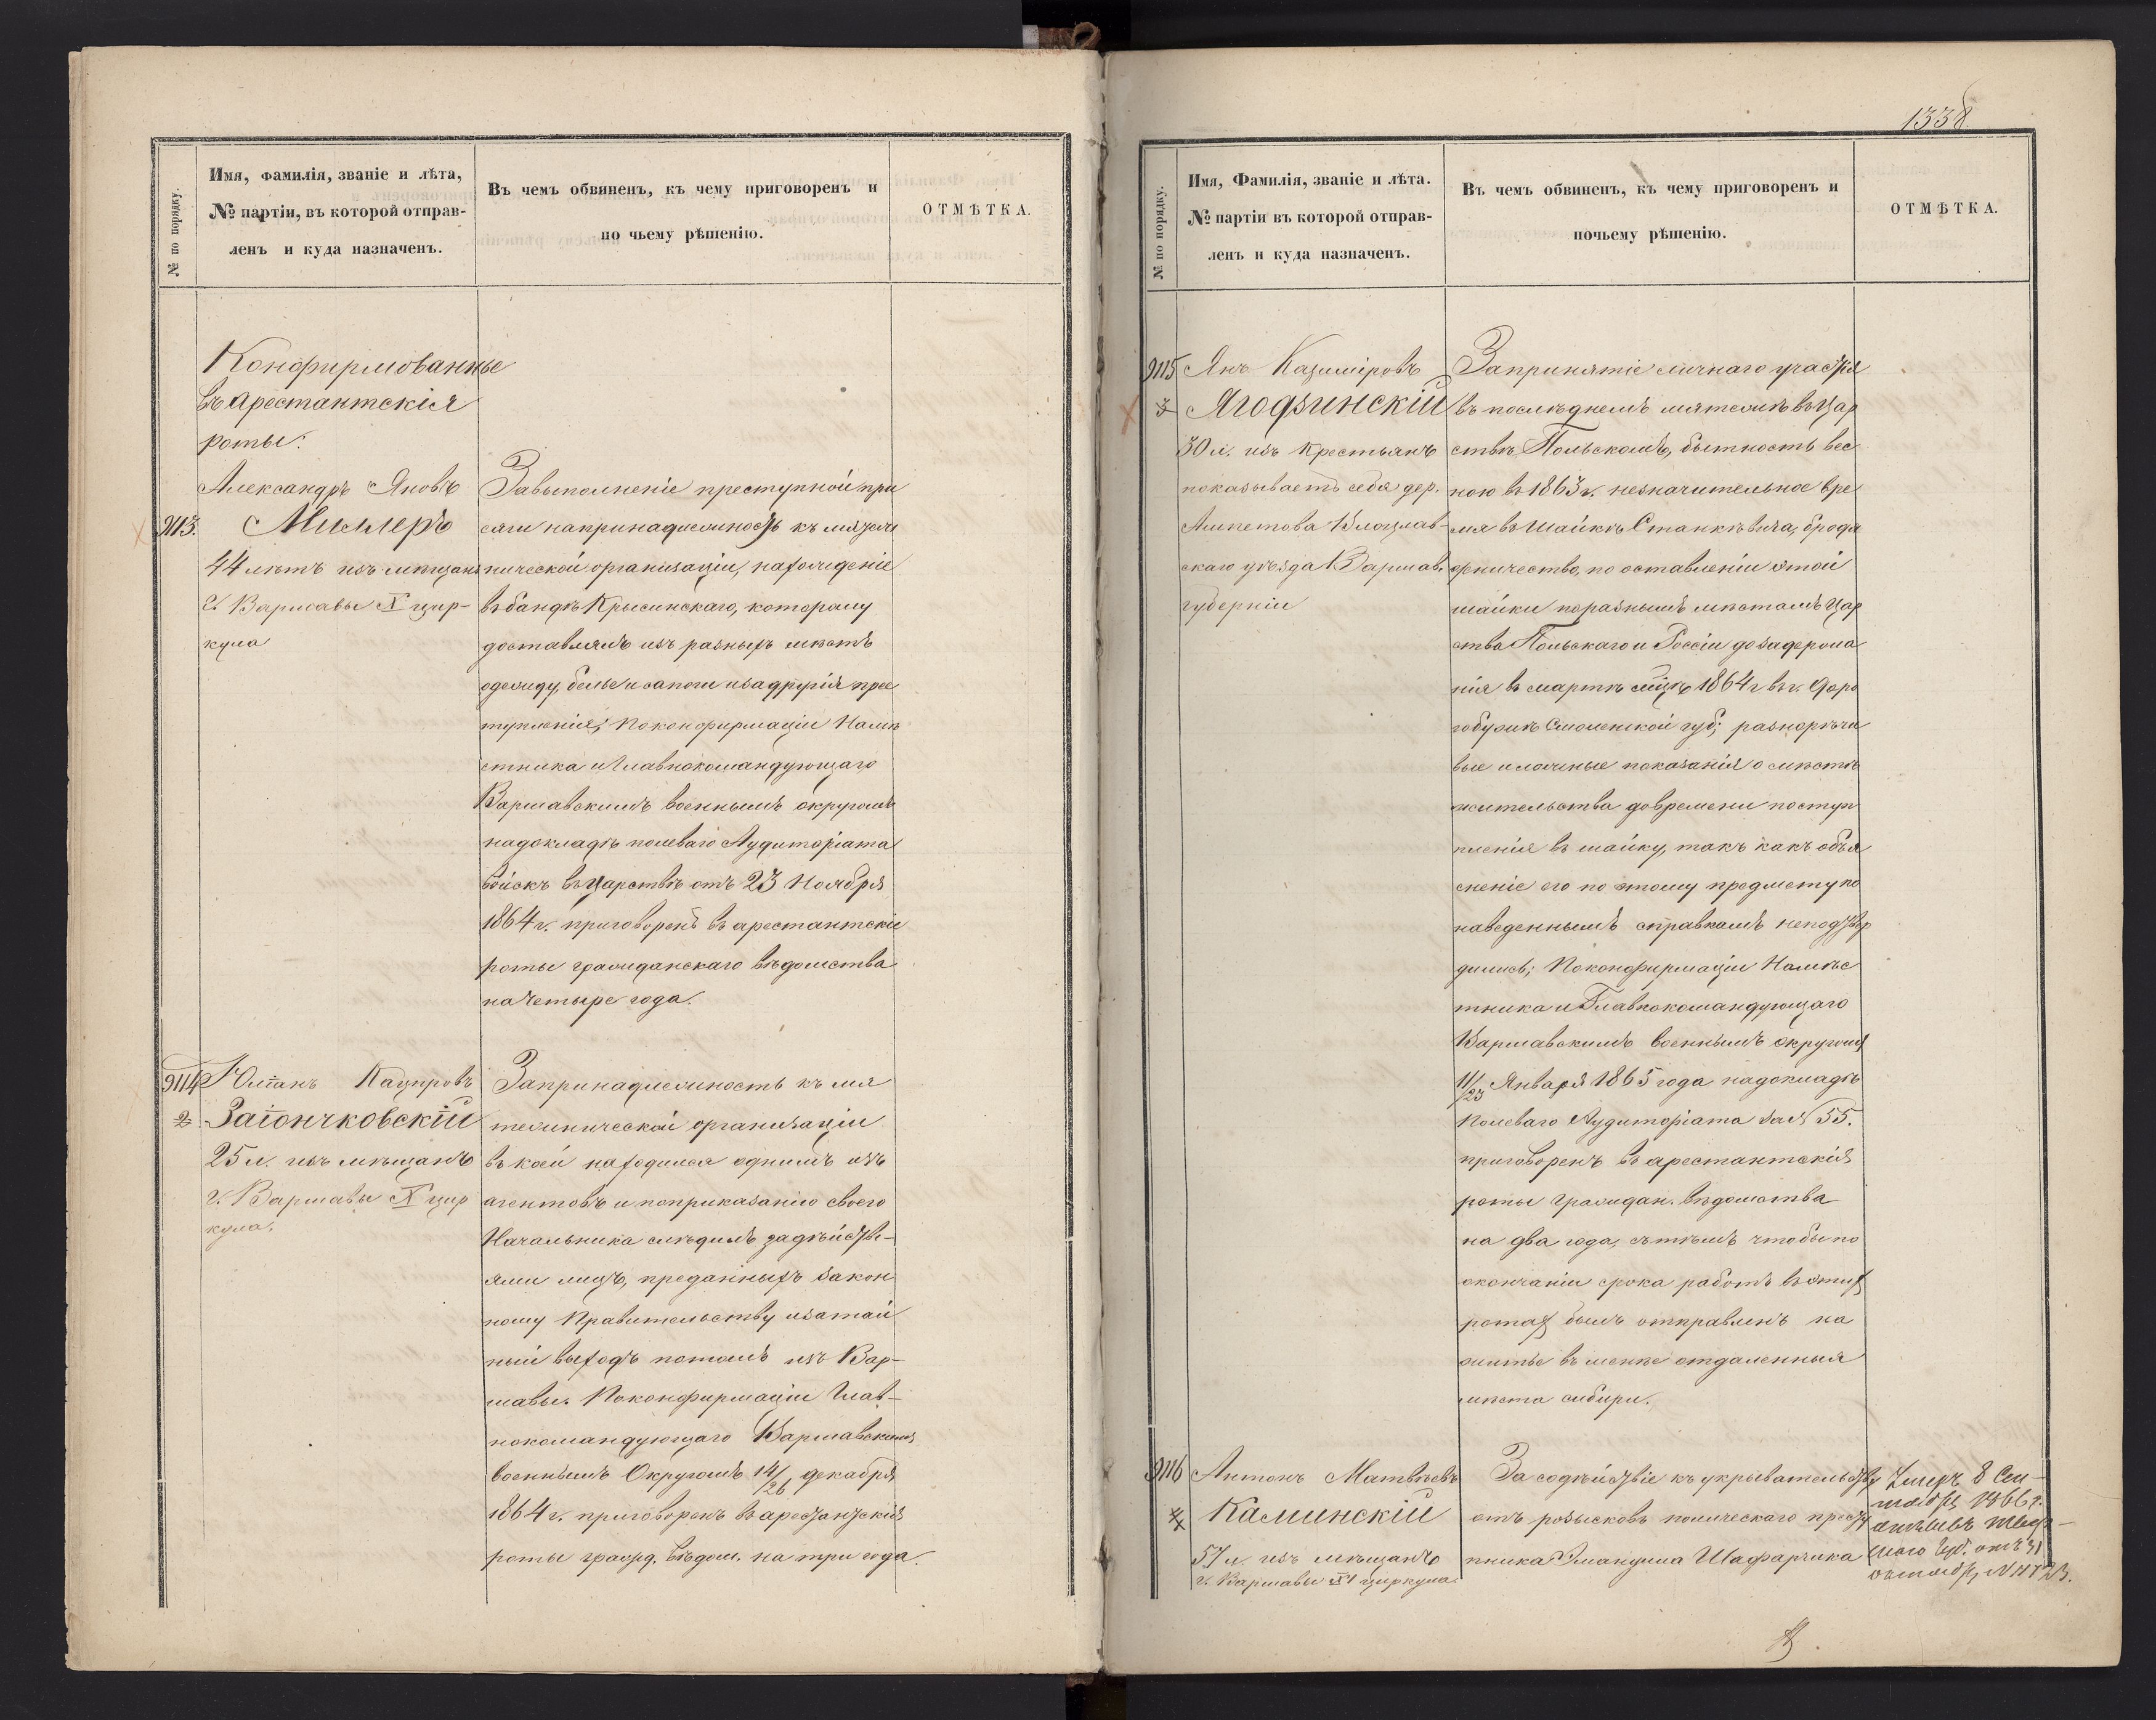 1338.
№ по порядку.
Имя, Фамилія, званіе и лѣта,
№ партіи, въ которой отправ-
ленъ и куда назначенъ.
Въ чемъ обвиненъ, къ чему приговоренъ и
по чьему рѣшенію.
ОТМѢТКА.
Конфирмованные
въ арестантскія
роты:
Александръ Яновъ
9113. Миллеръ
44 лѣтъ изъ мѣщанъ
г. Варшавы X цир-
кула
За выполненіе преступной при
сяги на принадлежность къ мятеж
нической организаціи, нахожденіе
въ бандѣ Крысинскаго, которому
доставлялъ изъ разныхъ мѣстъ
одежду, белье и сапоги и за другія прес
тупленія; По конфирмаціи Намѣ
стника и Главнокомандующаго
Варшавскимъ военнымъ округомъ
на докладѣ полеваго Аудиторіата
войскъ въ Царствѣ отъ 23 Ноября
1864 г. приговоренъ въ арестантскіе
роты гражданскаго вѣдомства
на четыре года.
9114 Юліанъ Кацпровъ
2 Заіончковскій
25 л. изъ мѣщанъ
г. Варшавы X цир
кула.
За принадлежность къ мя
тежнической организаціи
въ коей находился однимъ изъ
агентовъ и по приказанію своего
Начальника слѣдилъ за дѣйстві-
ями лицъ, преданныхъ закон
ному Правительству и за тай
ный выходъ потомъ изъ Вар-
шавы. По конфирмаціи Глав-
нокомандующаго Варшавскимъ
военнымъ Округомъ 14/26 декабря
1864 г. приговоренъ въ арестантскія
роты гражд. вѣдом. на три года.
№ по порядку.
Имя, Фамилія, званіе и лѣта.
№ партіи въ которой отправ-
ленъ и куда назначенъ.
Въ чемъ обвиненъ, къ чему приговоренъ и
почьему рѣшенію.
ОТМѢТКА.
9115 Янъ Казиміровъ
3 Ягодзинскій
30 л. изъ крестьянъ
показываетъ себя дер.
Влоцлав-
скаго уѣзда Варшав.
губерніи
За принятіе личнаго участія
въ послѣднемъ мятежѣ въ Цар
ствѣ Польскомъ, бытность вес
ною въ 1863 г. незначительное вре
мя въ шайкѣ Станкѣвича, бродя
жничество, по оставленіи этой
шайки по разнымъ мѣстамъ Цар
ства Польскаго и Россіи до задержа
нія въ мартѣ мцѣ 1864 г. въ г. Доро
гобужѣ Смоленской губ; разнорѣчи
вые и ложные показанія о мѣстѣ
жительства до времени поступ
пленія въ шайку, такъ какъ объя
сненіе его по этому предмету по
наведеннымъ справкамъ неподтвер
дились; По конфирмаціи Намѣс
тника и Главнокомандующаго
Варшавскимъ военнымъ округомъ
11/23 Января 1865 года на докладѣ
Полеваго Аудиторіата за № 55.
приговоренъ въ арестантскія
роты граждан. вѣдомства
на два года, съ тѣмъ чтобы по
окончаніи срока работъ въ этихъ
ротахъ былъ отправленъ на
житье въ менѣе отдаленныя
мѣста сибири.
9116 Антонъ Матвѣевъ
4 Каминскій
57 л. изъ мѣщанъ
г. Варшавы XI циркула.
За содѣйствіе къ укрывательству
отъ розысковъ политическаго престу
пника Шафарчика
Умеръ 8 Сен-
тября 1866 г.
октября, № 11723.